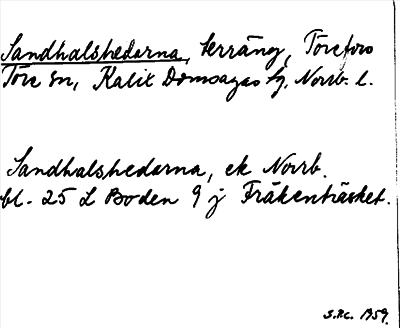 Sandhalshedarna, terräng, Törefors
Töre sn, Kalix Domsagas tg. Norrb. l.
Sandhalshedarna, ek Norrb.
bl. 25 L Boden 9 j Fräkenträsket.
S.H.C. 1959.